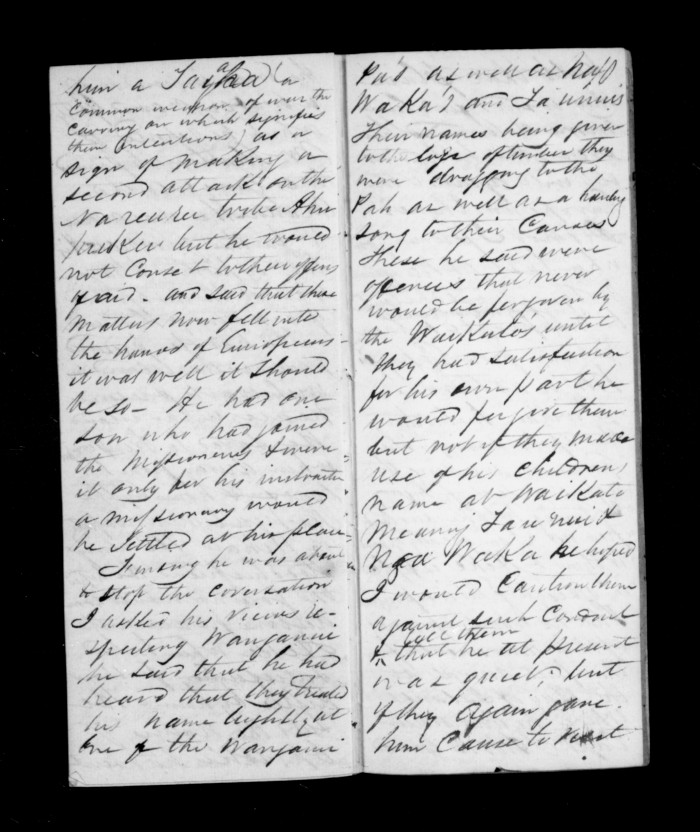 him a Taiaha (a
Common weapon of war the
Carrying on which signifies
their intentions) as a
sign of making a
second attack on the
tribe
but he would
not Conset to their
said - and said that these
Matters now fell into
the hands of Europeans -
it was well it should
be so - He had one
son who had joined
the Missioneries & were
it only for his
a missionary would
be settled at his place -
Finding he was about
to stop the coversation
I asked his views re-
specting Wanganui
he said that he had
heard that they treated
his name lightly at
one of the Wanganui
Pa's as well as
WaKa's and Tauwis
their names being given
to the logs of timber they
were dragging to the
Pah as well as a hauling
song to their Canoes
these he said were
ofences that never
would be forgiven by
the WaiKato's until
they had satisfaction
for his own part he
would forgive them
but not if they make
use of his Childrens
name at WaiKato
meaning &
Nga WaKa he hoped
I would Caution them
against such Conduct
& tell them that he at present
was quiet, but
if they again gave
him Cause to